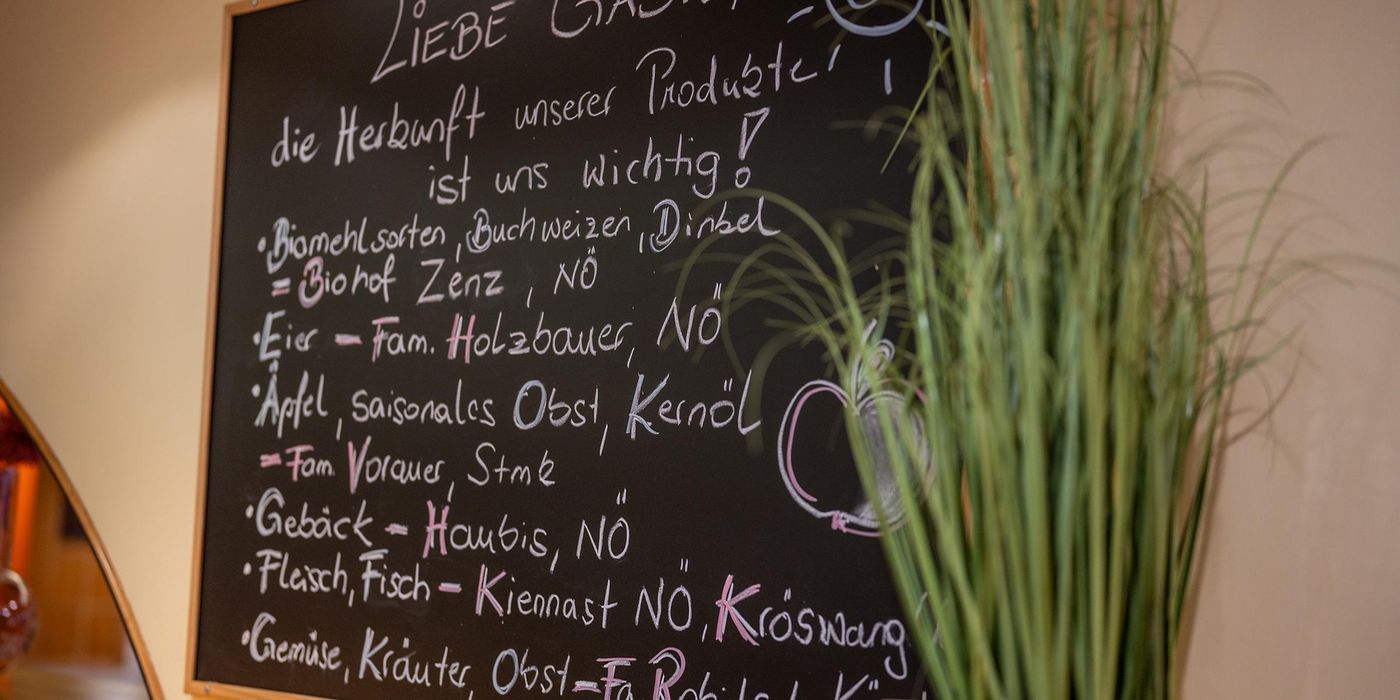 LIEBE
die Herkunft unserer Produkte
ist uns wichtig!
• Biomehlsorten, Buchweizen, Dinkel
= Biohof Zenz, NÖ
• Eier - Fam. Holzbauer, NÖ
• Äpfel, saisonales Obst, Kernöl
= Fam. Vorauer, Stmk
• Gebäck - Haubis, NÖ
• Fleisch, Fisch - Kiennast NÖ, Kröswang
• Gemüse, Kräuter, Obst = Fa.